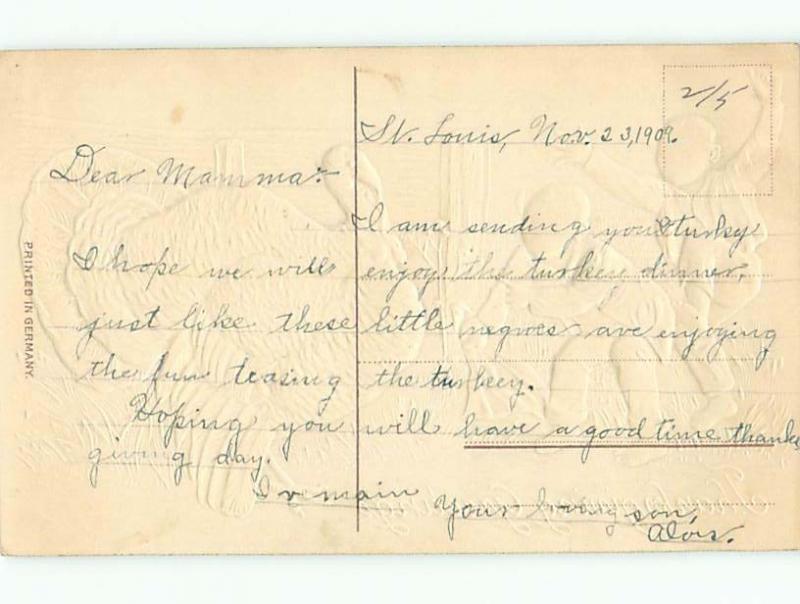 2/5
St. Louis, Nov. 23, 1909.
Dear Mamma:-
I am sending you a turkey
I hope we will enjoy the turkey dinner,
just like these little negroes are enjoying
the fun teasing the turkey.
Hoping you will have a good time thanks
giving day.
I remain your loving son,
Alois.
PRINTED IN GERMANY.